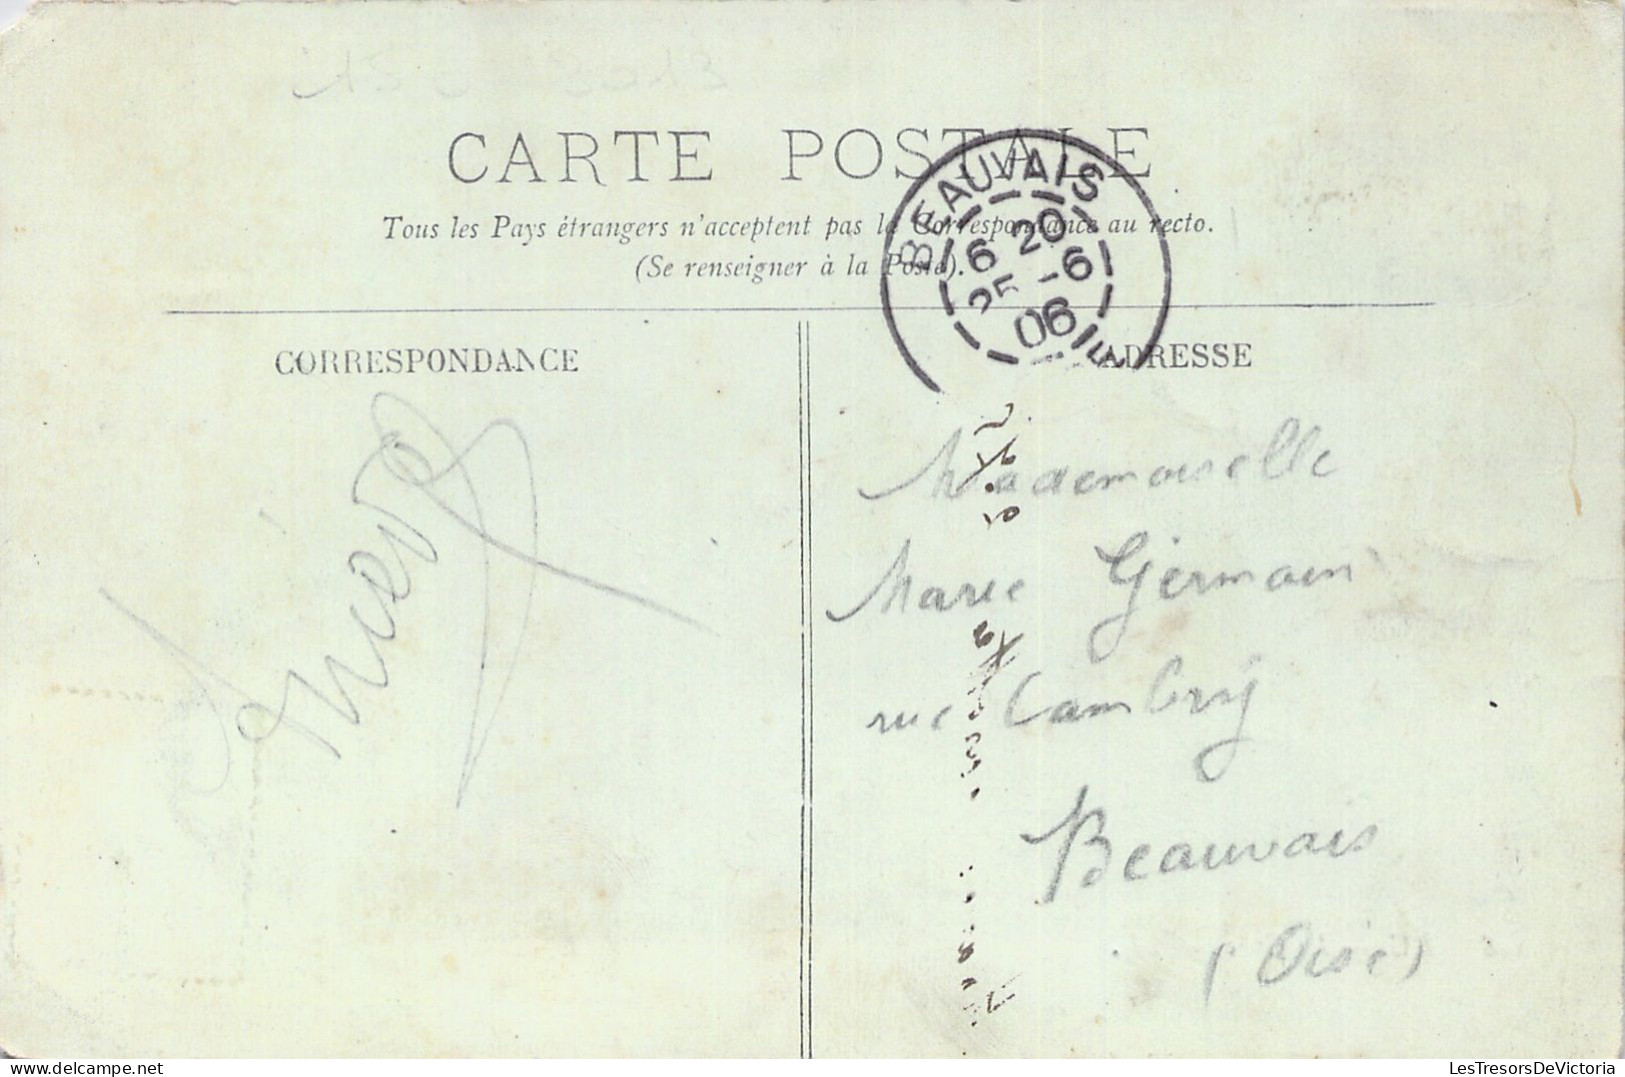 CARTE POSTALE
Tous les Pays étrangers n'acceptent pas la Correspondance au recto.
(Se renseigner à la Poste).
BEAUVAIS
6 20
25 -6
06
CORRESPONDANCE
ADRESSE
Mademoiselle
Marie Germain
rue Cambry
Beauvais
(Oise)
LesTresorsDeVictoria